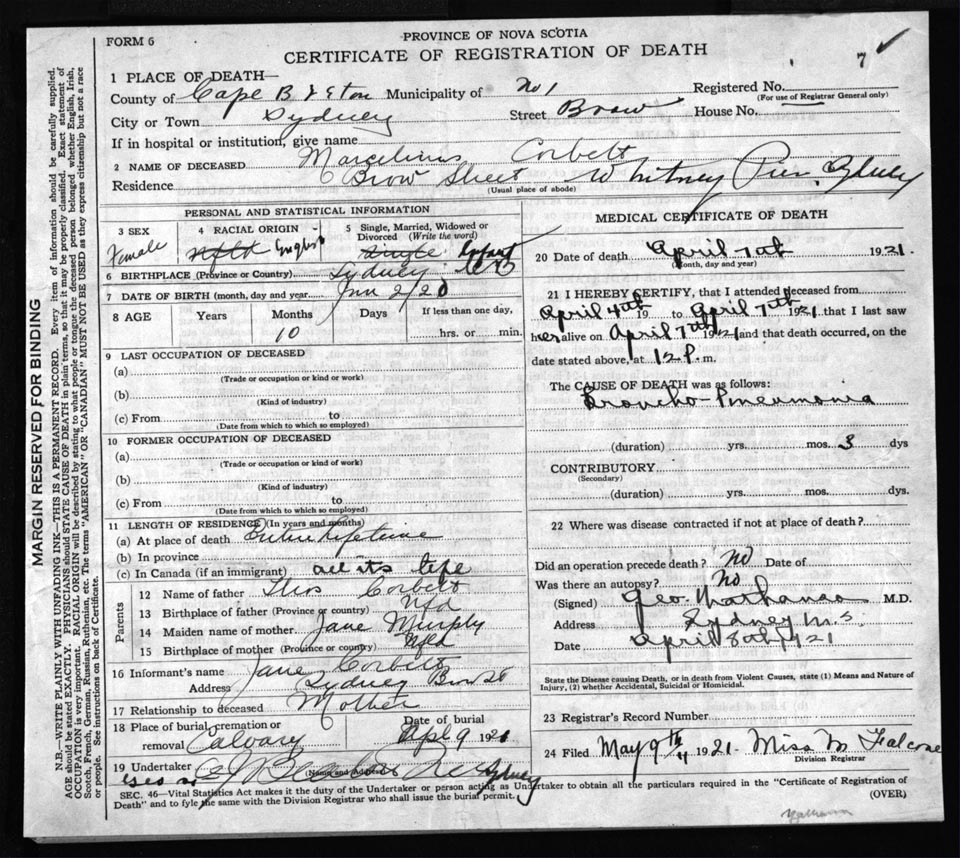 FORM 6
PROVINCE OF NOVA SCOTIA
CERTIFICATE OF REGISTRATION OF DEATH
7 ✓
1 PLACE OF DEATH—
County of Cape Breton Municipality of No 1 Registered No.
(For use of Registrar General only)
City or Town Sydney Street Brow House No.
If in hospital or institution, give name
2 NAME OF DECEASED Marcelinus Corbett
Residence Brow Street Whitney Pier Sydney
(Usual place of abode)
PERSONAL AND STATISTICAL INFORMATION
3 SEX Female
4 RACIAL ORIGIN English
5 Single, Married, Widowed or Divorced (Write the word) Single Infant
6 BIRTHPLACE (Province or Country) Sydney
7 DATE OF BIRTH (month, day and year) Jun 2/20
8 AGE Years Months Days If less than one day,
10 hrs. or min.
9 LAST OCCUPATION OF DECEASED
(a)
(Trade or occupation or kind or work)
(b)
(Kind of industry)
(c) From to
(Date from which to which so employed)
10 FORMER OCCUPATION OF DECEASED
(a)
(Trade or occupation or kind of work)
(b)
(Kind of industry)
(c) From to
(Date from which to which so employed)
11 LENGTH OF RESIDENCE (In years and months)
(a) At place of death Entire lifetime
(b) In province
(c) In Canada (if an immigrant) all its life
Parents
12 Name of father Thos Corbett
13 Birthplace of father (Province or country) Nfd
14 Maiden name of mother Jane Murphy
15 Birthplace of mother (Province or country) Nfld
16 Informant's name Jane Corbett
Address Sydney Brow St
17 Relationship to deceased Mother
18 Place of burial, cremation or removal Calvary Date of burial Apl 9 1921
19 Undertaker Sydney
(Name and Address)
MEDICAL CERTIFICATE OF DEATH
20 Date of death April 7th 1921.
(Month, day and year)
21 I HEREBY CERTIFY, that I attended deceased from
April 4th 19 to April 7th 1921 that I last saw
her alive on April 7th 1921 and that death occurred, on the
date stated above, at 12 P.m.
The CAUSE OF DEATH was as follows:
Broncho-Pneumonia
(duration) yrs. mos. 3 dys
CONTRIBUTORY
(Secondary)
(duration) yrs. mos. dys.
22 Where was disease contracted if not at place of death?
Did an operation precede death? No Date of
Was there an autopsy? No
(Signed) Geo. M.D.
Address Sydney N.S.
Date April 8th 1921
State the Disease causing Death, or in death from Violent Causes, state (1) Means and Nature of
Injury, (2) whether Accidental, Suicidal or Homicidal.
23 Registrar's Record Number
24 Filed May 9th 1921. Miss M Falcone
Division Registrar
SEC. 46—Vital Statistics Act makes it the duty of the Undertaker or person acting as Undertaker to obtain all the particulars required in the "Certificate of Registration of
Death" and to fyle the same with the Division Registrar who shall issue the burial permit.
(OVER)
MARGIN RESERVED FOR BINDING
N.B.—WRITE PLAINLY WITH UNFADING INK—THIS IS A PERMANENT RECORD. Every item of information should be carefully supplied.
AGE should be stated EXACTLY. PHYSICIANS should STATE CAUSE OF DEATH in plain terms, so that it may be properly classified. Exact statement of
OCCUPATION is very important. RACIAL ORIGIN will be described by stating to what people or tongue the deceased person belonged whether English, Irish,
Scotch, French, German, Russian, Ruthenian, etc. The terms "AMERICAN" OR "CANADIAN" MUST NOT BE USED as they express citizenship but not a race
or people. See instructions on back of Certificate.